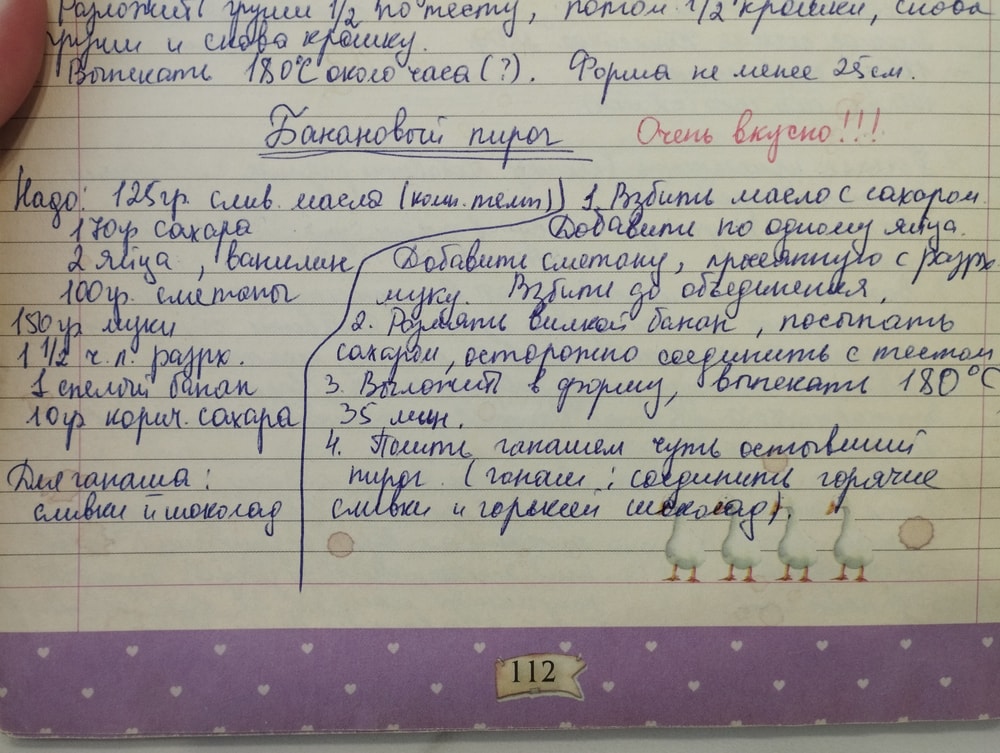 Разложить груши 1/2 по тесту, потом 1/2 крошки, снова
груши и снова крошку.
Выпекать 180°C около часа (?). Форма не менее 25 см.
Банановый пирог
Очень вкусно!!!
Надо: 125гр. слив. масла (комн. темп)
170гр сахара
2 яйца, ванилин
100гр. сметаны
150гр муки
1 1/2 ч.л. разрх.
1 спелый банан
10гр корич. сахара
Для ганаша:
сливки и шоколад
1. Взбить масло с сахаром.
Добавить по одному яйца.
Добавить сметану, просеянную с разрх.
муку. Взбить до объединения.
2. Размять вилкой банан, посыпать
сахаром, осторожно соединить с тестом
3. Выложить в форму, выпекать 180°C
35 мин.
4. Полить ганашем чуть остывший
пирог. (ганаш: соединить горячие
сливки и горький шоколад).
112